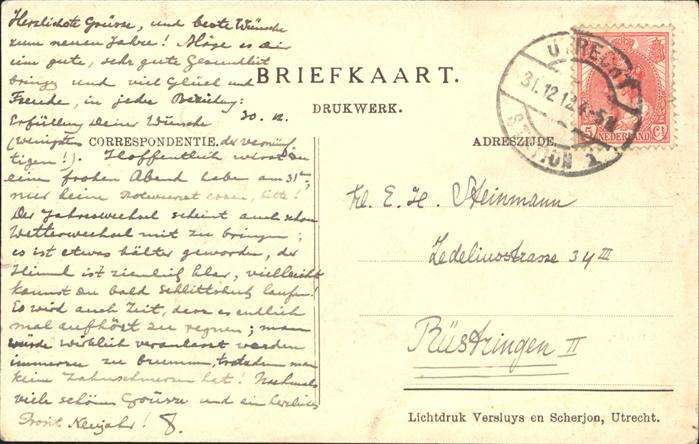 Herzlichste Grüsse, und beste Wünsche
zum neuen Jahre! Möge es dir
eine gute, sehr gute Gesundheit
bringen und viel Glück und
Freude, in jeder Beziehung:
Erfüllung Deiner Wünsche 30.12.
(wenigstens der vernünf-
tigen!). Hoffentlich wirst du
einen frohen Abend haben am 31ten,
nur keine essen, bitte!
Der Jahreswechsel scheint auch schon
Wetterwechsel mit zu bringen;
es ist etwas kälter geworden, der
Himmel ist ziemlich klar, vielleicht
kannst Du bald Schlittschuh laufen!
Es wird auch Zeit, dass es endlich
mal aufhört zu regnen; man
würde wirklich veranlasst werden
immerzu zu brummen, trotzdem man
keine Zahnschmerzen hat! Nochmals
viele schöne Grüsse und ein herzliches
Prosit Neujahr!
BRIEFKAART.
DRUKWERK.
CORRESPONDENTIE.
ADRESZIJDE.
UTRECHT
31.12.12
STATION 1
5 NEDERLAND Ct
E. H. Steinmann
Zedeliusstrasse 34 III
Rüstringen II
Lichtdruk Versluys en Scherjon, Utrecht.